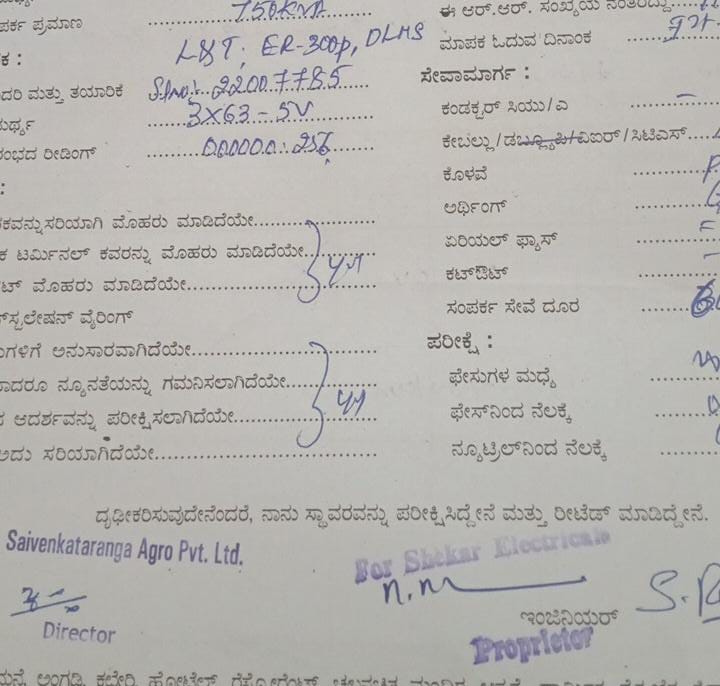 ಪರ್ಕ ಪ್ರಮಾಣ ..................750KVA
ಈ ಆರ್.ಆರ್. ಸಂಖ್ಯೆಯ ನಂತರದ್ದು
ಕ : L&T, ER-300p, DLMS
ಮಾಪಕ ಓದುವ ದಿನಾಂಕ
ದರಿ ಮತ್ತು ತಯಾರಿಕೆ Sl.no:- 22007785
ಸೇವಾಮಾರ್ಗ :
ಮರ್ಥ್ಯ ..................3X63-5V
ಕಂಡಕ್ಟರ್ ಸಿಯು/ಎ ..................-
ರಂಭದ ರೀಡಿಂಗ್ ..................000000.256
ಕೇಬಲ್ಲು/ಡಬ್ಲ್ಯೂಪಿ/ವಿಐರ್/ಸಿಟಿಎಸ್
ಕೊಳವೆ
:
ಅರ್ಥಿಂಗ್
ಕವನ್ನು ಸರಿಯಾಗಿ ಮೊಹರು ಮಾಡಿದೆಯೇ
ಕ ಟರ್ಮಿನಲ್ ಕವರನ್ನು ಮೊಹರು ಮಾಡಿದೆಯೇ
ಏರಿಯಲ್ ಫ್ಯಾಸ್
ಟ್ ಮೊಹರು ಮಾಡಿದೆಯೇ
ಕಟ್‌ಔಟ್
ಸ್‌ಸ್ಟಲೇಷನ್ ವೈರಿಂಗ್
ಸಂಪರ್ಕ ಸೇವೆ ದೂರ
ಗಳಿಗೆ ಅನುಸಾರವಾಗಿದೆಯೇ
ಪರೀಕ್ಷೆ :
ಾದರೂ ನ್ಯೂನತೆಯನ್ನು ಗಮನಿಸಲಾಗಿದೆಯೇ
ಫೇಸುಗಳ ಮಧ್ಯೆ
ನ ಆದರ್ಶವನ್ನು ಪರೀಕ್ಷಿಸಲಾಗಿದೆಯೇ
ಫೇಸ್‌ನಿಂದ ನೆಲಕ್ಕೆ
ಅದು ಸರಿಯಾಗಿದೆಯೇ
ನ್ಯೂಟ್ರಿಲ್‌ನಿಂದ ನೆಲಕ್ಕೆ
ದೃಢೀಕರಿಸುವುದೇನೆಂದರೆ, ನಾನು ಸ್ಥಾವರವನ್ನು ಪರೀಕ್ಷಿಸಿದ್ದೇನೆ ಮತ್ತು ರೀಟೆಡ್ ಮಾಡಿದ್ದೇನೆ.
Saivenkataranga Agro Pvt. Ltd.
For Shekar Electricals
ಇಂಜಿನಿಯರ್
Director
Proprietor